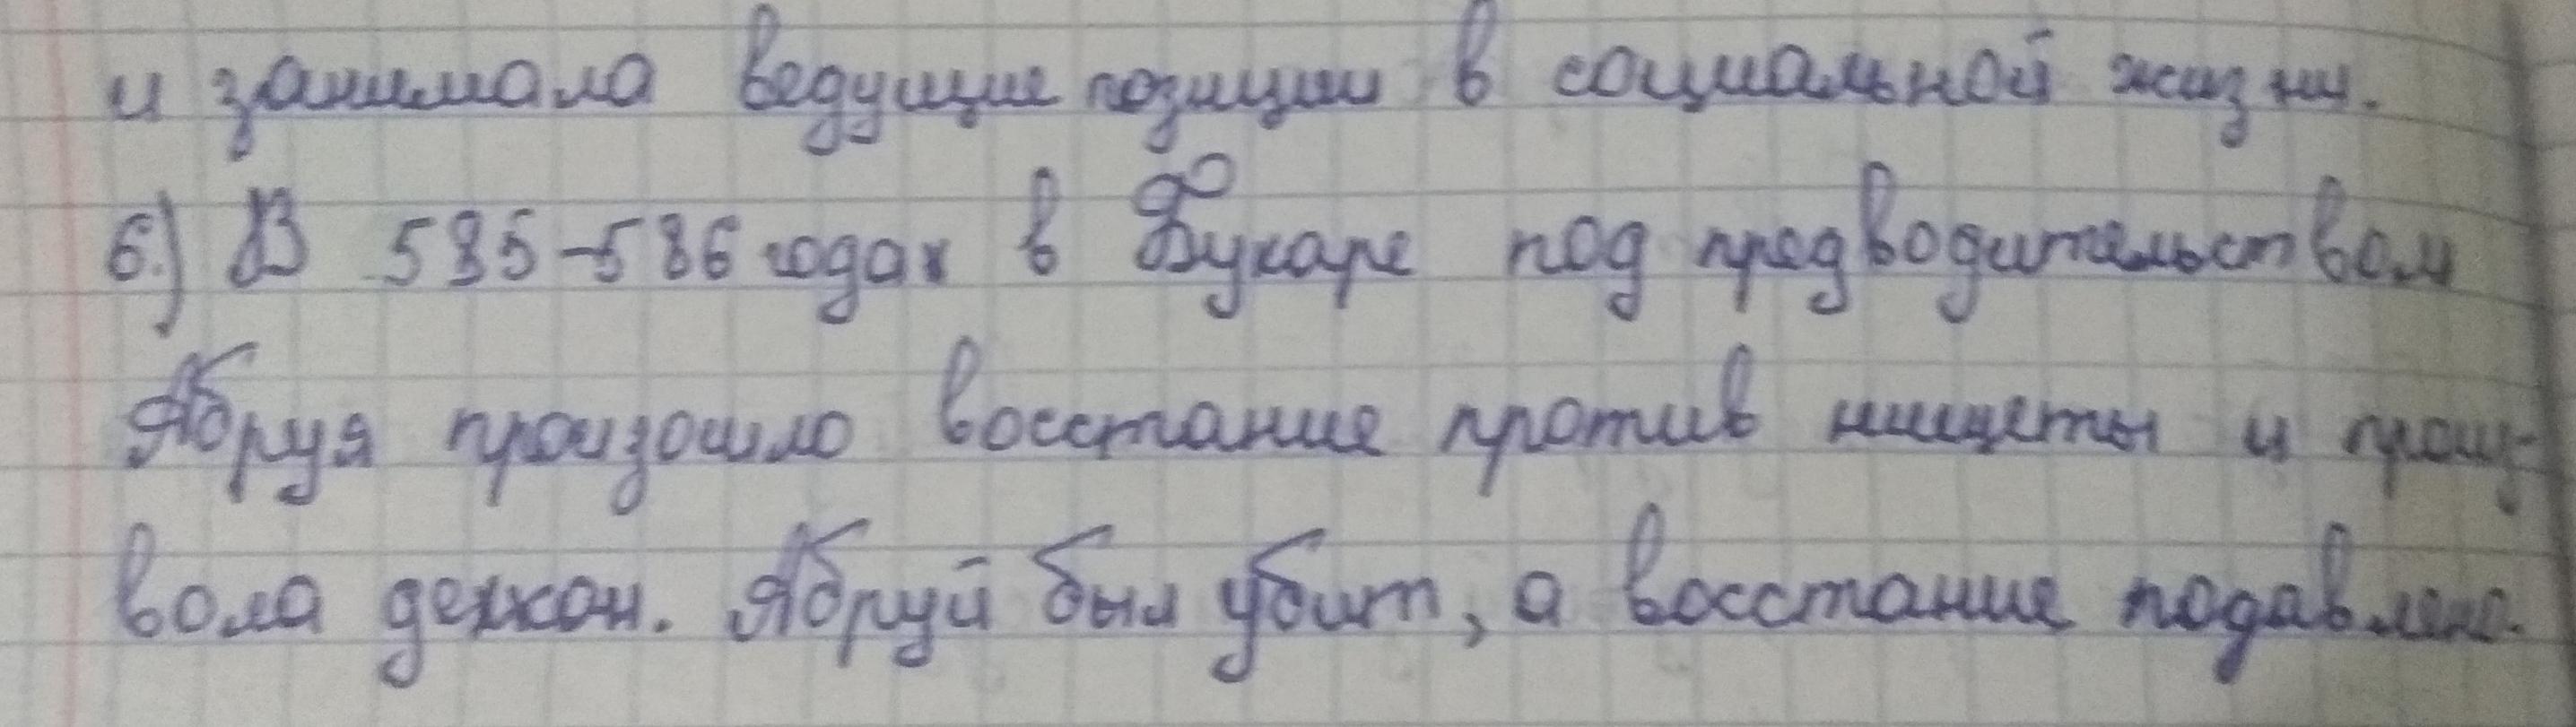 и занимала ведущие позиции в социальной жизни.
6.) В 585-586 годах в Бухаре под предводительством
Абруя произошло восстание против нищеты и произ-
вола дехкан. Абруй был убит, а восстание подавлено.